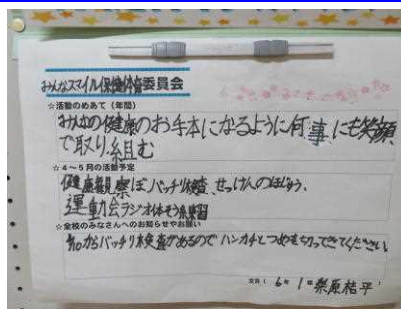 みんなスマイル保健体育委員会
☆活動のめあて（年間）
みんなの健康のお手本になるように何事にも笑顔
で取り組む
☆４～５月の活動予定
健康観察ぼ、バッチリ検査、せっけんのほじゅう、
運動会ラジオ体そう練習
☆全校のみなさんへのお知らせやお願い
からバッチリ検査があるのでハンカチとつめを切ってきてください
文責（ 6年 1組